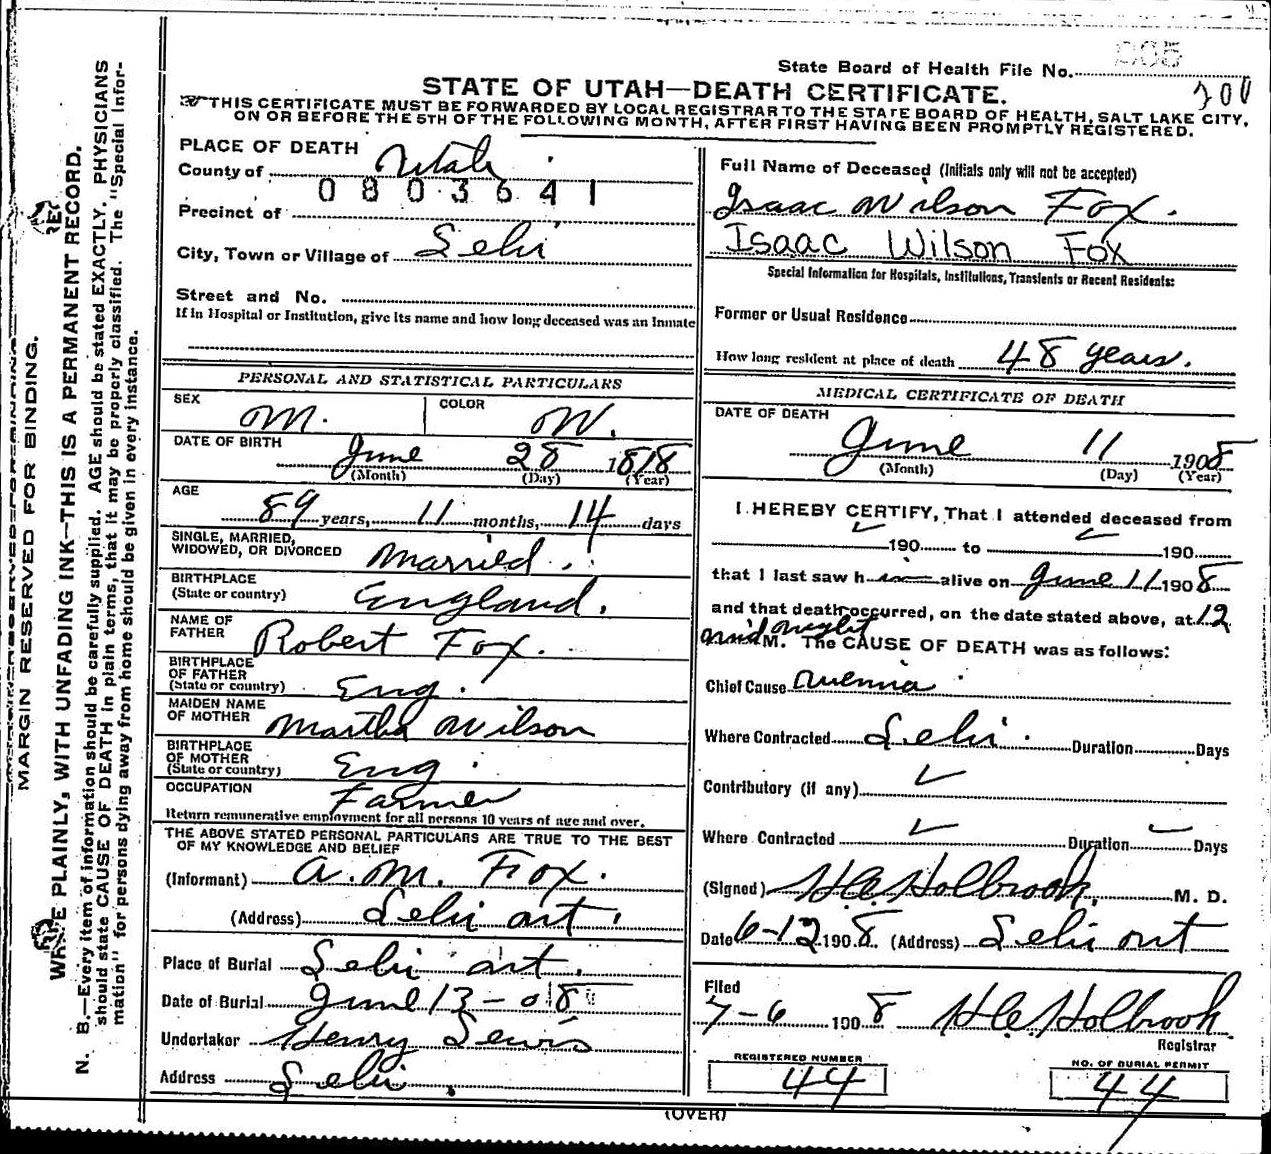 State Board of Health File No.
200
STATE OF UTAH—DEATH CERTIFICATE.
THIS CERTIFICATE MUST BE FORWARDED BY LOCAL REGISTRAR TO THE STATE BOARD OF HEALTH, SALT LAKE CITY,
ON OR BEFORE THE 5TH OF THE FOLLOWING MONTH, AFTER FIRST HAVING BEEN PROMPTLY REGISTERED.
MARGIN RESERVED FOR BINDING.
WRITE PLAINLY, WITH UNFADING INK—THIS IS A PERMANENT RECORD.
N. B.—Every item of information should be carefully supplied. AGE should be stated EXACTLY. PHYSICIANS
should state CAUSE OF DEATH in plain terms, that it may be properly classified. The "Special Infor-
mation" for persons dying away from home should be given in every instance.
PLACE OF DEATH
County of Utah
0803641
Precinct of
City, Town or Village of Lehi
Street and No.
If in Hospital or Institution, give its name and how long deceased was an Inmate
PERSONAL AND STATISTICAL PARTICULARS
SEX M. COLOR W.
DATE OF BIRTH
June 28 1818
(Month) (Day) (Year)
AGE
89 years, 11 months, 14 days
SINGLE, MARRIED,
WIDOWED, OR DIVORCED Married.
BIRTHPLACE
(State or country) England.
NAME OF
FATHER Robert Fox.
BIRTHPLACE
OF FATHER
(State or country) Eng.
MAIDEN NAME
OF MOTHER Martha Wilson
BIRTHPLACE
OF MOTHER
(State or country) Eng.
OCCUPATION Farmer
Return remunerative employment for all persons 10 years of age and over.
THE ABOVE STATED PERSONAL PARTICULARS ARE TRUE TO THE BEST
OF MY KNOWLEDGE AND BELIEF
(Informant) A. M. Fox.
(Address) Lehi
Place of Burial Lehi
Date of Burial June 13-08
Undertaker Henry Lewis
Address Lehi.
Full Name of Deceased (Initials only will not be accepted)
Isaac Wilson Fox.
Isaac Wilson Fox
Special Information for Hospitals, Institutions, Transients or Recent Residents:
Former or Usual Residence
How long resident at place of death 48 years.
MEDICAL CERTIFICATE OF DEATH
DATE OF DEATH
June 11 1908
(Month) (Day) (Year)
I HEREBY CERTIFY, That I attended deceased from
190 to 190
that I last saw h alive on June 11 1908
and that death occurred, on the date stated above, at 12
midnight M. The CAUSE OF DEATH was as follows:
Chief Cause
Where Contracted Lehi. Duration Days
Contributory (if any)
Where Contracted Duration Days
(Signed) H.E. Holbrook, M. D.
Date 6-12 1908. (Address) Lehi
Filed
7-6 1908 H.E. Holbrook
Registrar
REGISTERED NUMBER
44
NO. OF BURIAL PERMIT
44
(OVER)